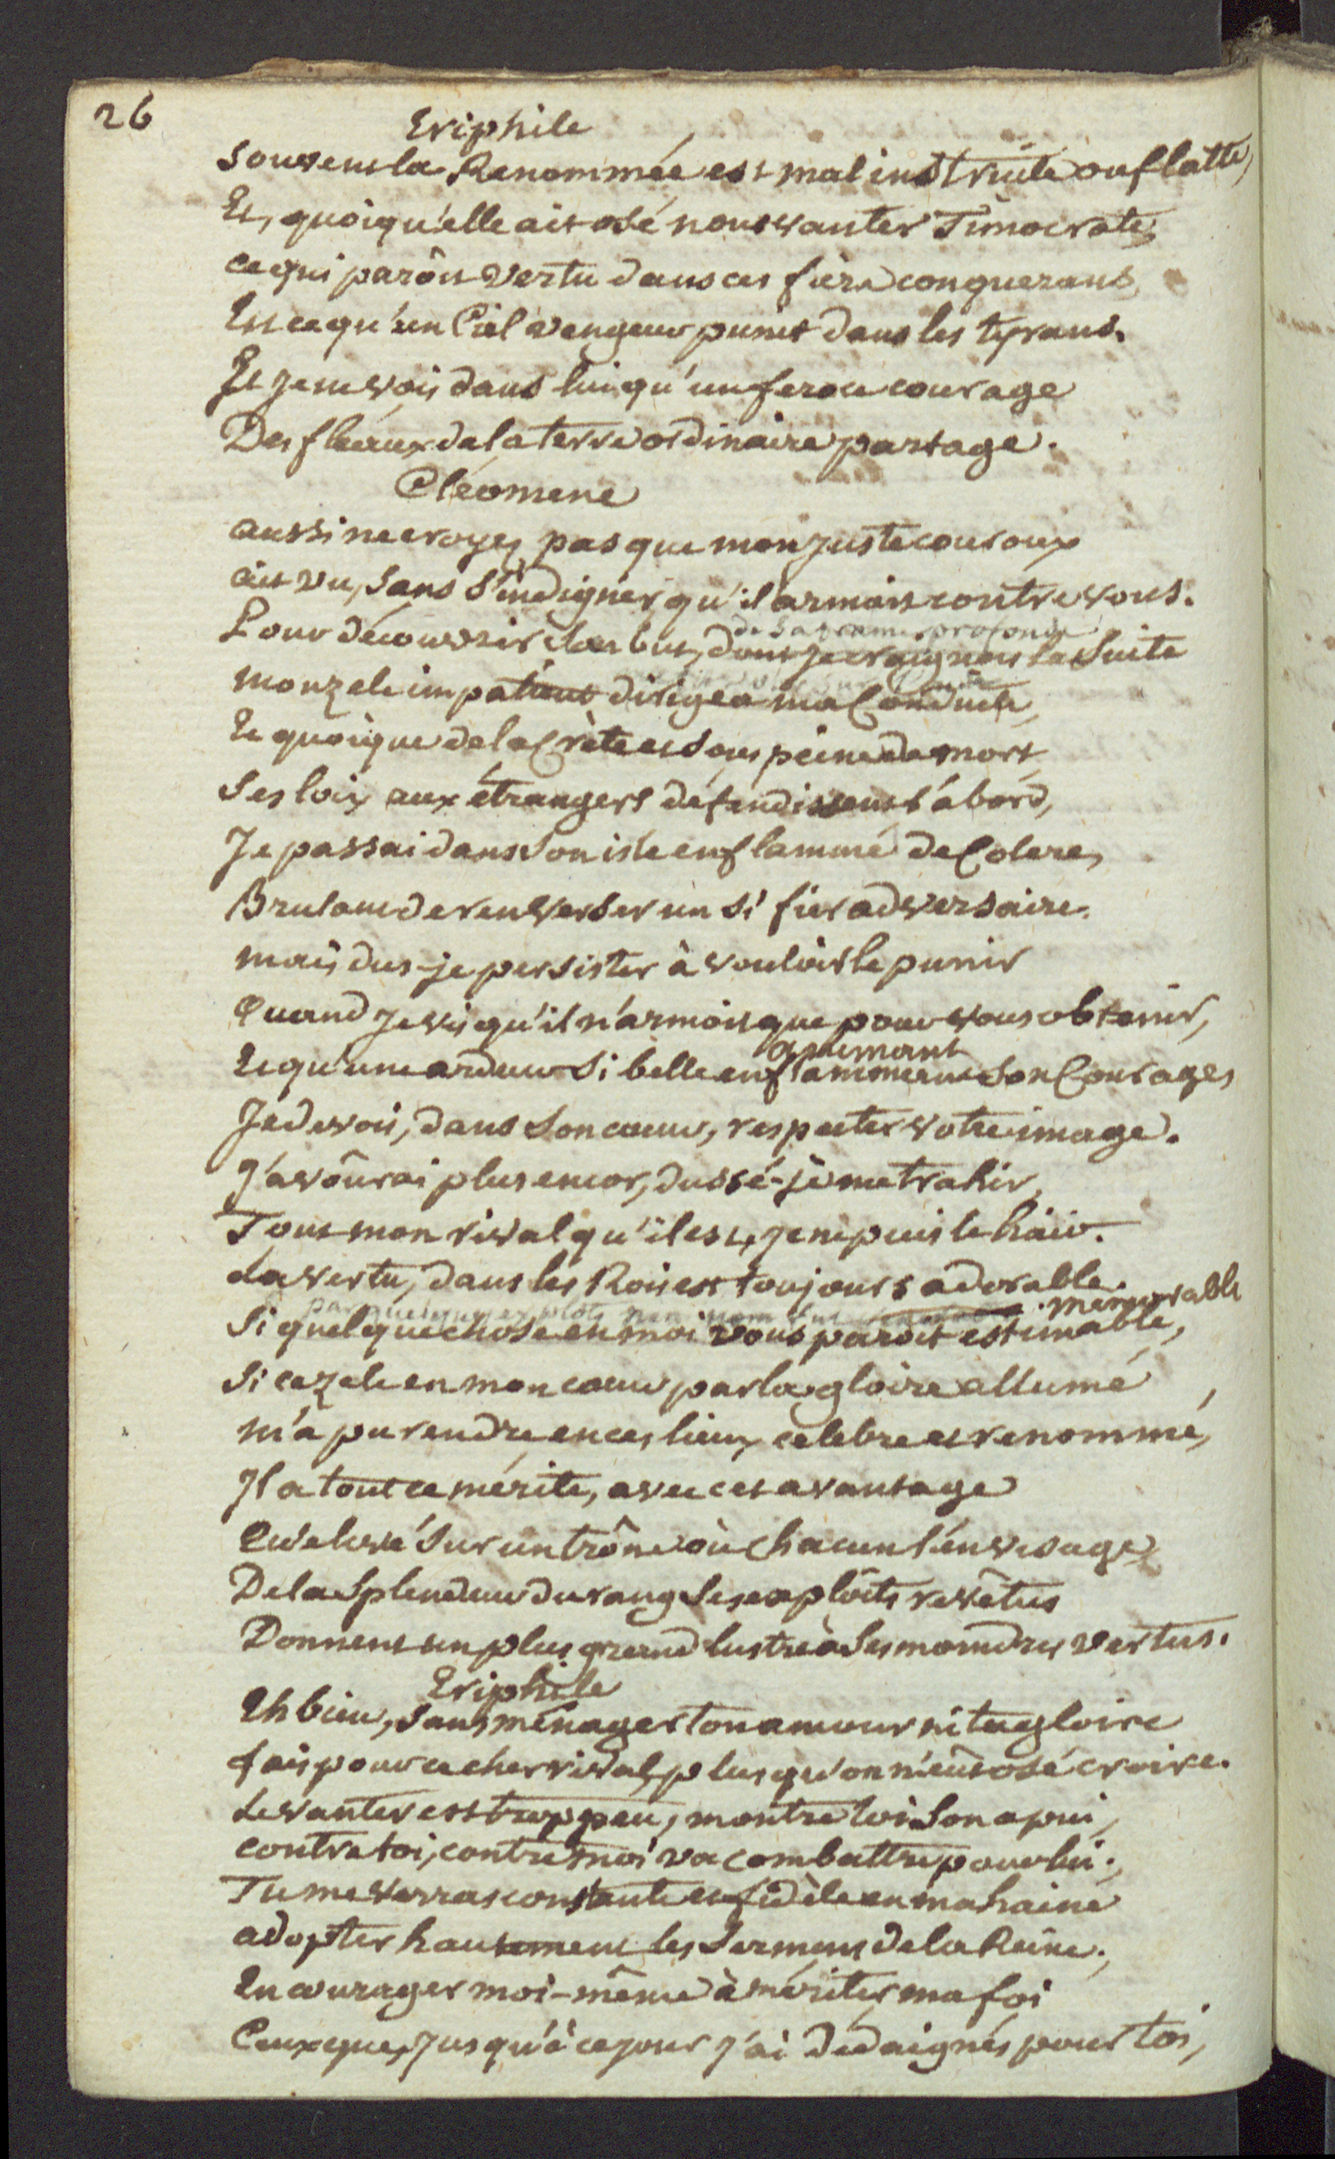 26
Eriphile
Souvent la Renommée est mal instruite ou flatte,
Et, quoiqu'elle ait osé nous vanter Timocrate,
ce qui parôit vertu dans ces fiers conquerans
Est ce qu'un Ciel vengeur punit dans les tyrans.
Et je ne vois dans lui qu'un feroce courage
Des fléaux de la terre ordinaire partage.
Cléomene
aussi ne croyez pas que mon juste couroux
ait vu, sans s'indigner, qu'il armoit contre vous.
de sa trame profonde
Pour découvrir son but, dont je craignois la suite
mon zele impatient dirigea ma Conduite,
Et quoique de la Crète et sous peine de mort
Ses loix aux étrangers défendissent l'abord,
Je passai dans son isle enflammé de Colere,
Brulant de renverser un si fier adversaire.
mais dus-je persister à vouloir le punir
Quand je vis qu'il n'armoit que pour vous obtenir,
animant
Et qu'une ardeur si belle enflammant son Courage,
Je devois, dans son coeur, respecter votre image.
J'avôurai plus encor, dussé-je me trahir,
Tout mon rival qu'il est, je ne puis le haïr.
La vertu, dans les Rois est toujours adorable.
par quelques exploits mon nom memorable
Si quelque chose en moi vous paroit estimable,
Si ce zele en mon coeur par la gloire allumé,
m'a pu rendre en ces lieux celebre et renommé,
Il a tout ce mérite, avec cet avantage
Qu'elevé sur un trône où chacun l'envisage,
De la splendeur du rang ses exploits revêtus
Donnent un plus grand lustre à ses moindres vertus.
Eriphile
Eh bien, sans ménager ton amour ni ta gloire
fais pour ce cher rival plus qu'on n'eût osé croire.
Le vanter est trop peu, montre toi son apui,
contre toi, contre moi va combattre pour lui.
Tu me verras constante et fidèle en ma haine
adopter hautement les Sermens de la Reine,
Encourager moi-même à mériter ma foi
Ceux que, jusqu'à ce jour j'ai dédaignés pour toi,